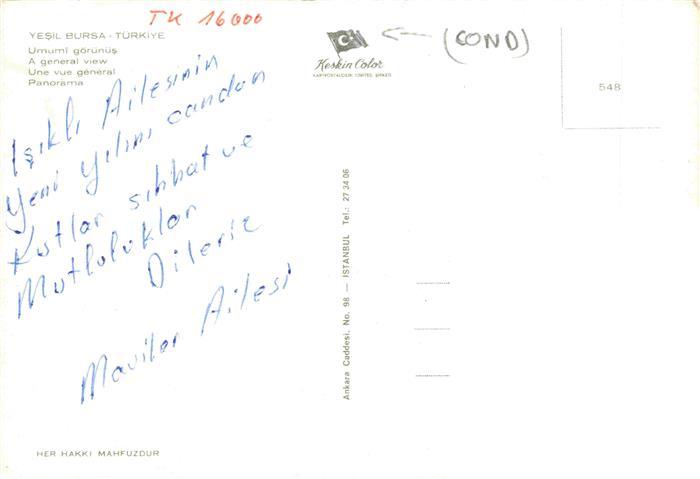 TK 16000
YEŞİL BURSA - TÜRKİYE
Umumî görünüş
A general view
Une vue général
Panorama
Işıklı Ailesinin
Yeni Yılını candan
Kutlar sıhhat ve
Mutluluklar
Dileriz
Maviler Ailesi
HER HAKKI MAHFUZDUR
(COND)
Keskin Color
KARTPOSTALCILIK LİMİTED ŞİRKETİ
548
Ankara Caddesi, No. 98 — İSTANBUL Tel.: 27 34 06